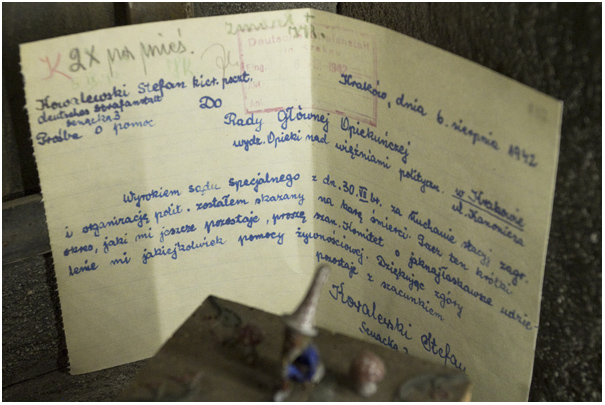 2x
zmarł
Kowalewski Stefan kier. poczt.
deutsches Strafanstalt
Senacka 3
Prośba o pomoc
Kraków, dnia 6. sierpnia 1942
Do
Rady Głównej Opiekuńczej
wydz. Opieki nad więźniami polityczn. w Krakowie
Wyrokiem sądu specjalnego z dn. 30. za słuchanie stacj. zagr.
i organizację polit. zostałem skazany na karę śmierci. Przez ten krótki
okres, jaki mi jeszcze pozostaje, proszę szan. Komitet o jaknajłaskawsze udzie-
lenie mi jakiejkolwiek pomocy żywnościowej. Dziękując zgóry
pozostaję z szacunkiem
Kowalewski Stefan
Senacka 3